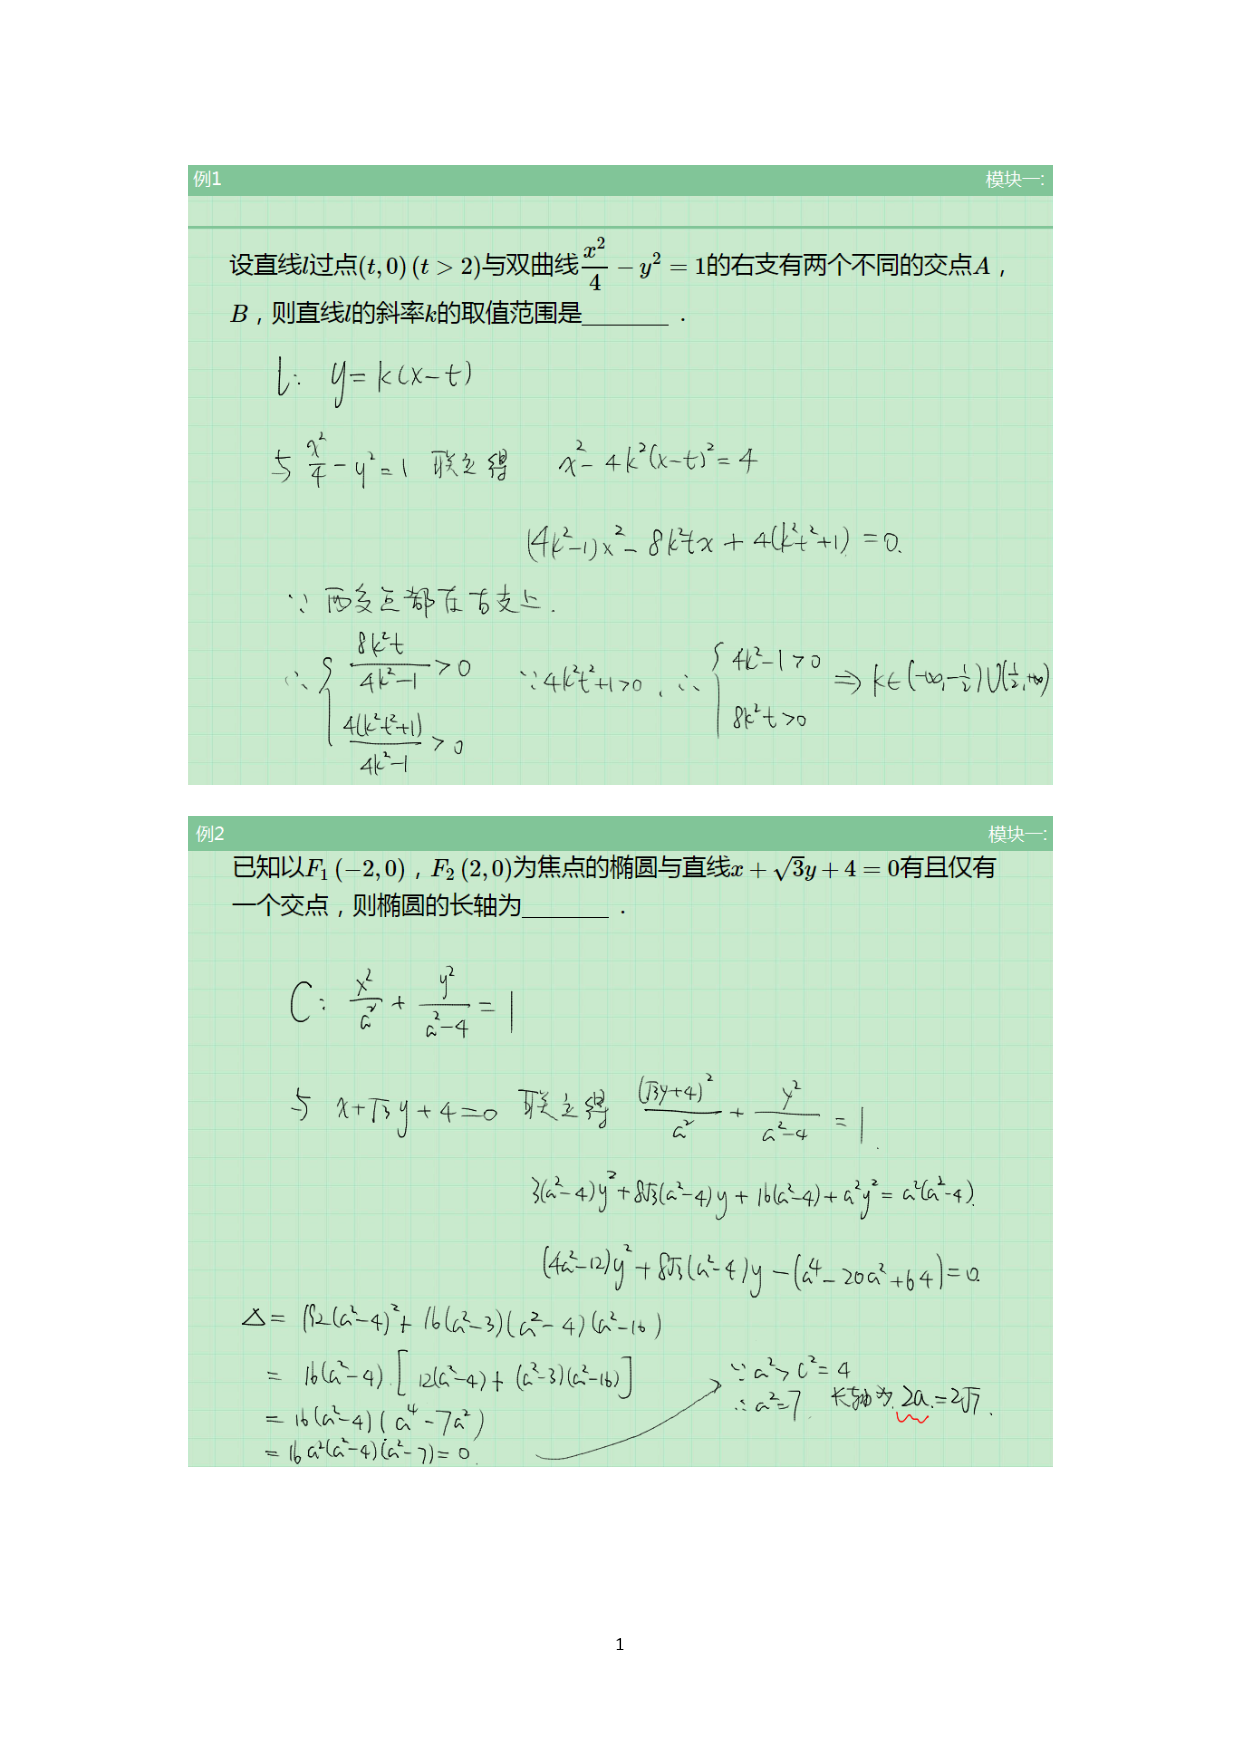 例1 模块一:
设直线l过点(t,0)(t>2)与双曲线x²/4-y²=1的右支有两个不同的交点A，
B，则直线l的斜率k的取值范围是_______．
l: y=k(x-t)
与 x²/4-y²=1 联立得 x²-4k²(x-t)²=4
(4k²-1)x²-8k²tx+4(k²t²+1)=0.
∵ 两交点都在右支上.
∴ { 8k²t/(4k²-1)>0 ∵4k²t²+1>0, ∴ { 4k²-1>0 ⇒ k∈(-∞,-1/2)∪(1/2,+∞)
4(k²t²+1)/(4k²-1)>0 8k²t>0
例2 模块一:
已知以F₁(-2,0)，F₂(2,0)为焦点的椭圆与直线x+√3y+4=0有且仅有
一个交点，则椭圆的长轴为_______．
C: x²/a²+y²/(a²-4)=1
与 x+√3y+4=0 联立得 (√3y+4)²/a²+y²/(a²-4)=1.
3(a²-4)y²+8√3(a²-4)y+16(a²-4)+a²y²=a²(a²-4).
(4a²-12)y²+8√3(a²-4)y-(a⁴-20a²+64)=0
△=192(a²-4)²+16(a²-3)(a²-4)(a²-16)
=16(a²-4).[12(a²-4)+(a²-3)(a²-16)] ∵a²>c²=4
=16(a²-4)(a⁴-7a²) ∴a²=7. 长轴为.2a.=2√7.
=16a²(a²-4)(a²-7)=0.
1